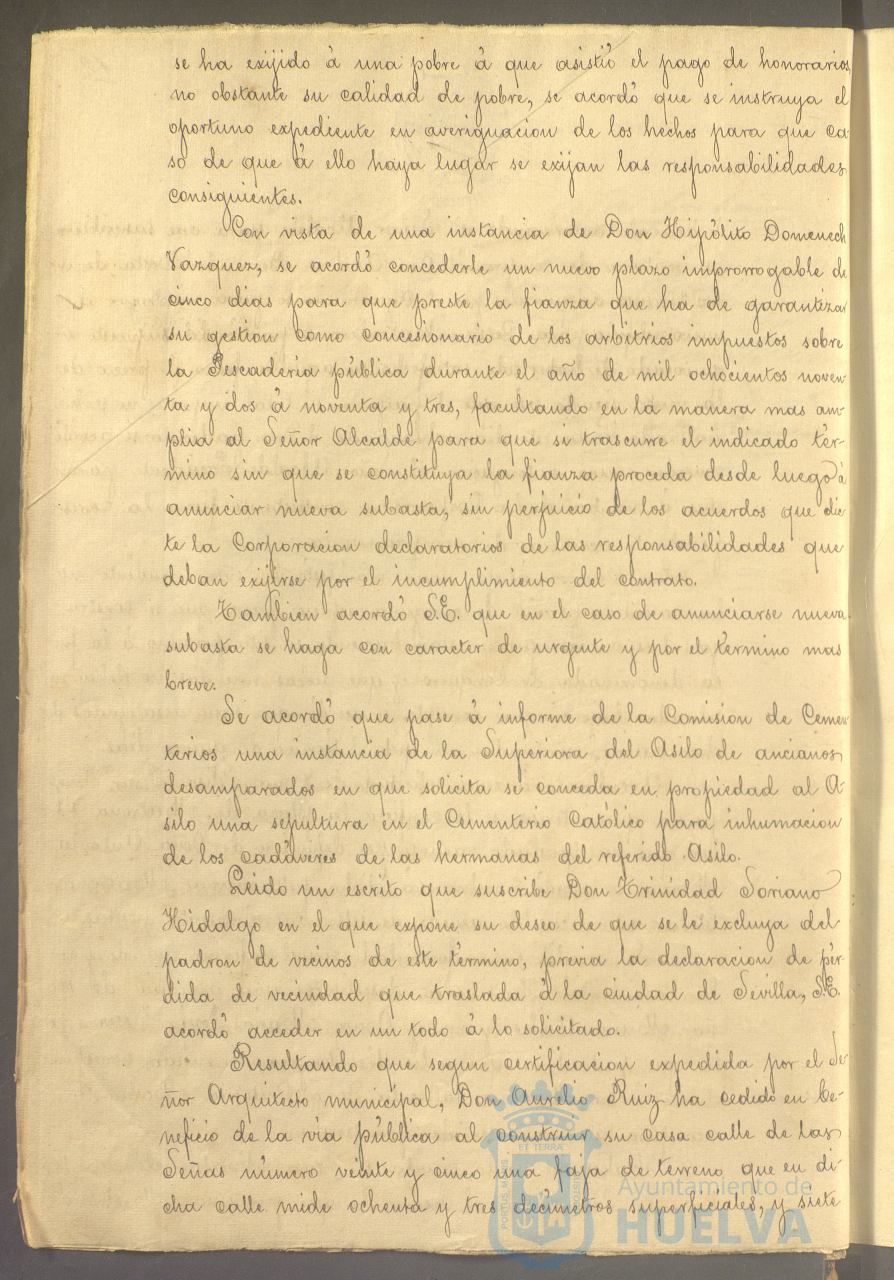 se ha exijido á una pobre á que asistió el pago de honorarios,
no obstante su calidad de pobre, se acordó que se instruya el
oportuno expediente en averiguacion de los hechos para que ca-
so de que á ello haya lugar se exijan las responsabilidades
consiguientes.
Con vista de una instancia de Don Hipólito Domenech
Vazquez, se acordó concederle un nuevo plazo improrrogable de
cinco dias para que preste la fianza que ha de garantizar
su gestion como concesionario de los arbitrios impuestos sobre
la Pescadería pública durante el año de mil ochocientos noven-
ta y dos á noventa y tres, facultando en la manera mas am-
plia al Señor Alcalde para que si trascurre el indicado tér-
mino sin que se constituya la fianza proceda desde luego á
anunciar nueva subasta, sin perjuicio de los acuerdos que dic-
te la Corporacion declaratorios de las responsabilidades que
deban exijirse por el incumplimiento del contrato.
Tambien acordó S.E. que en el caso de anunciarse nueva
subasta se haga con caracter de urgente y por el término mas
breve.
Se acordó que pase á informe de la Comision de Cemen-
terios una instancia de la Superiora del Asilo de ancianos
desamparados en que solicita se conceda en propiedad al A-
silo una sepultura en el Cementerio Católico para inhumacion
de los cadáveres de las hermanas del referido Asilo.
Leido un escrito que suscribe Don Trinidad Soriano
Hidalgo en el que expone su deseo de que se le excluya del
padron de vecinos de este término, previa la declaracion de pér-
dida de vecindad que traslada á la ciudad de Sevilla, S.E.
acordó acceder en un todo á lo solicitado.
Resultando que segun certificacion expedida por el Se-
ñor Arquitecto municipal, Don Aurelio Ruiz ha cedido en be-
neficio de la via pública al construir su casa calle de las
Señas número veinte y cinco una faja de terreno que en di-
cha calle mide ochenta y tres decímetros superficiales, y siete
ET TERRÆ
PORTUS
Ayuntamiento de
HUELVA